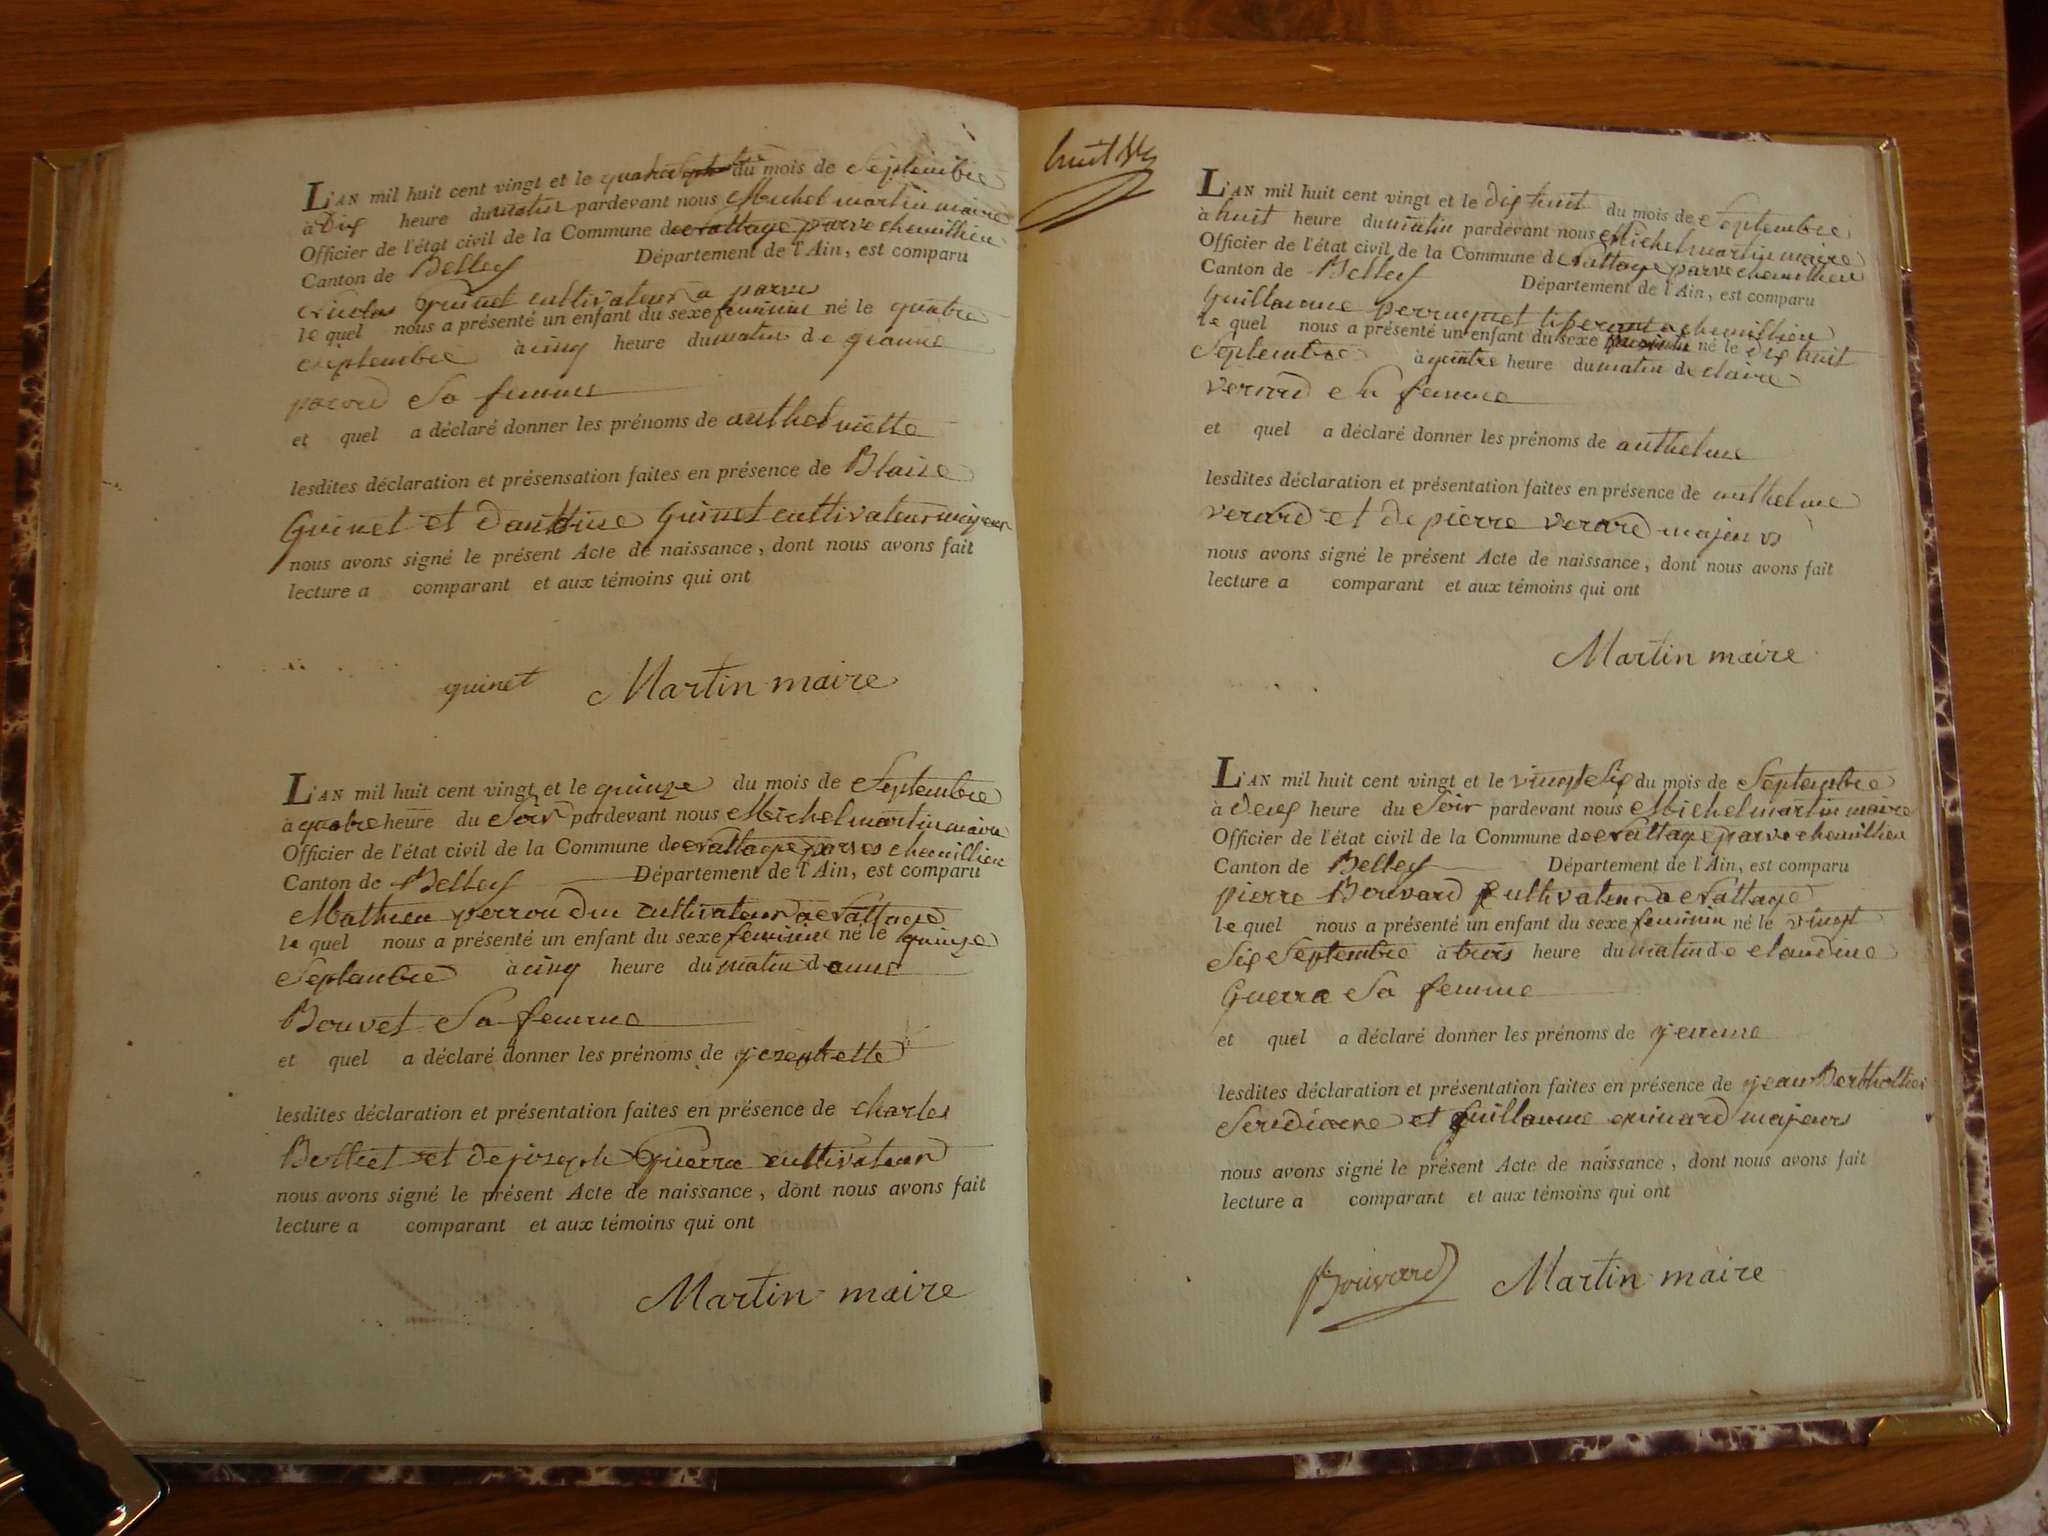 L'AN mil huit cent vingt et le quatre du mois de Septembre
à Dix heure du matin pardevant nous Michel martin maire
Officier de l'état civil de la Commune de nattage parve chemillieu
Canton de Belley Département de l'Ain, est comparu
Nicolas Guinet cultivateur a parves
le quel nous a présenté un enfant du sexe feminin né le quatre
Septembre à cinq heure du matin de jeanne
parvd Sa femme
et quel a déclaré donner les prénoms de anthelmette
lesdites déclaration et présensation faites en présence de Blaise
Guinet et d'anthme Guinet cultivateur majeurs
nous avons signé le présent Acte de naissance, dont nous avons fait
lecture a comparant et aux témoins qui ont
guinet Martin maire
L'AN mil huit cent vingt et le quinze du mois de Septembre
à quatre heure du Soir pardevant nous Michel martin maire
Officier de l'état civil de la Commune de nattage parves chemillieu
Canton de Belley Département de l'Ain, est comparu
Mathieu perroudin cultivateur a nattage
le quel nous a présenté un enfant du sexe feminin né le quinze
Septembre à cinq heure du matin d'anne
Bouvet Sa femme
et quel a déclaré donner les prénoms de josephette
lesdites déclaration et présentation faites en présence de charles
Belliet et de joseph Guerra cultivateur
nous avons signé le présent Acte de naissance, dont nous avons fait
lecture a comparant et aux témoins qui ont
Martin maire
huit
L'AN mil huit cent vingt et le dix huit du mois de Septembre
à huit heure du matin pardevant nous Michel martin maire
Officier de l'état civil de la Commune de nattage parve chemillieu
Canton de Belley Département de l'Ain, est comparu
Guillaume perruquet a chemillieu
le quel nous a présenté un enfant du sexe né le dix huit
Septembre à quatre heure du matin de claire
verard Sa femme
et quel a déclaré donner les prénoms de anthelme
lesdites déclaration et présentation faites en présence de anthelme
verard et de pierre verard majeurs
nous avons signé le présent Acte de naissance, dont nous avons fait
lecture a comparant et aux témoins qui ont
Martin maire
L'AN mil huit cent vingt et le vingt Six du mois de Septembre
à deux heure du Soir pardevant nous Michel martin maire
Officier de l'état civil de la Commune de nattage parve chemillieu
Canton de Belley Département de l'Ain, est comparu
pierre Bouvard cultivateur a nattage
le quel nous a présenté un enfant du sexe feminin né le vingt
Six Septembre à trois heure du matin de claudine
Guerra Sa femme
et quel a déclaré donner les prénoms de jeanne
lesdites déclaration et présentation faites en présence de jean Berthollier
et guillaume majeurs
nous avons signé le présent Acte de naissance, dont nous avons fait
lecture a comparant et aux témoins qui ont
Bouvard Martin maire